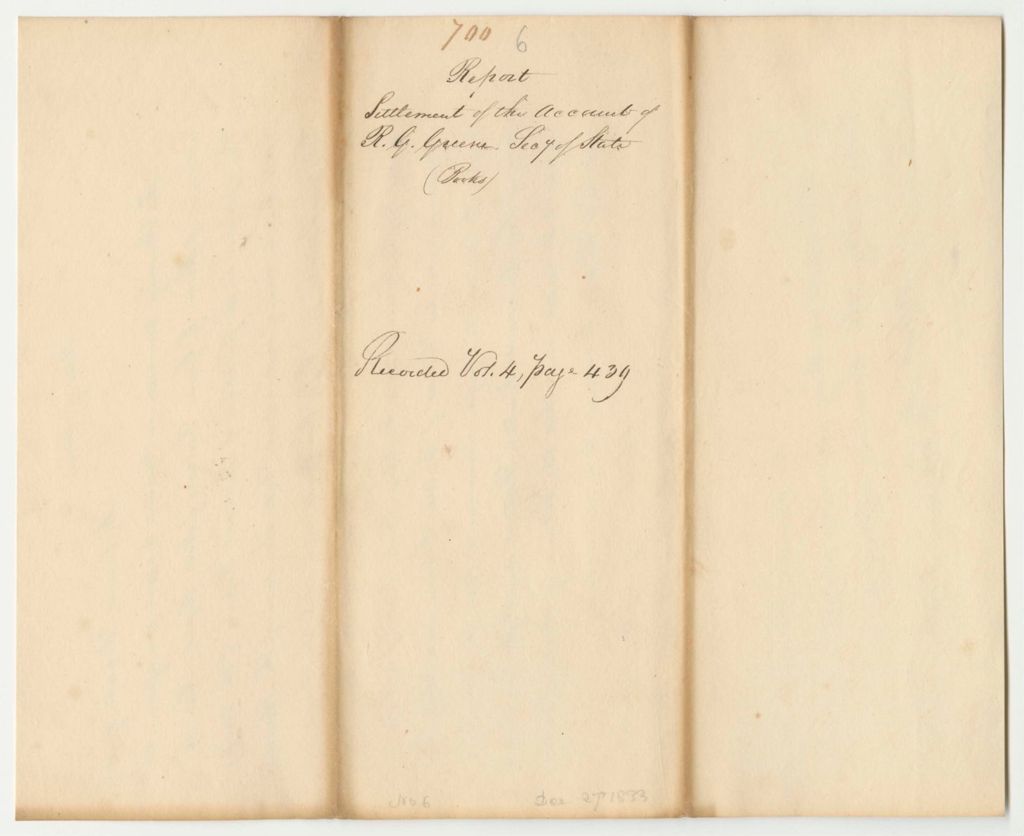 700 6
Report
Settlement of the Account of
R. G. Greene Secy of State
(Books)
Recorded Vol. 4, page 439
No 6 Dec 27 1833